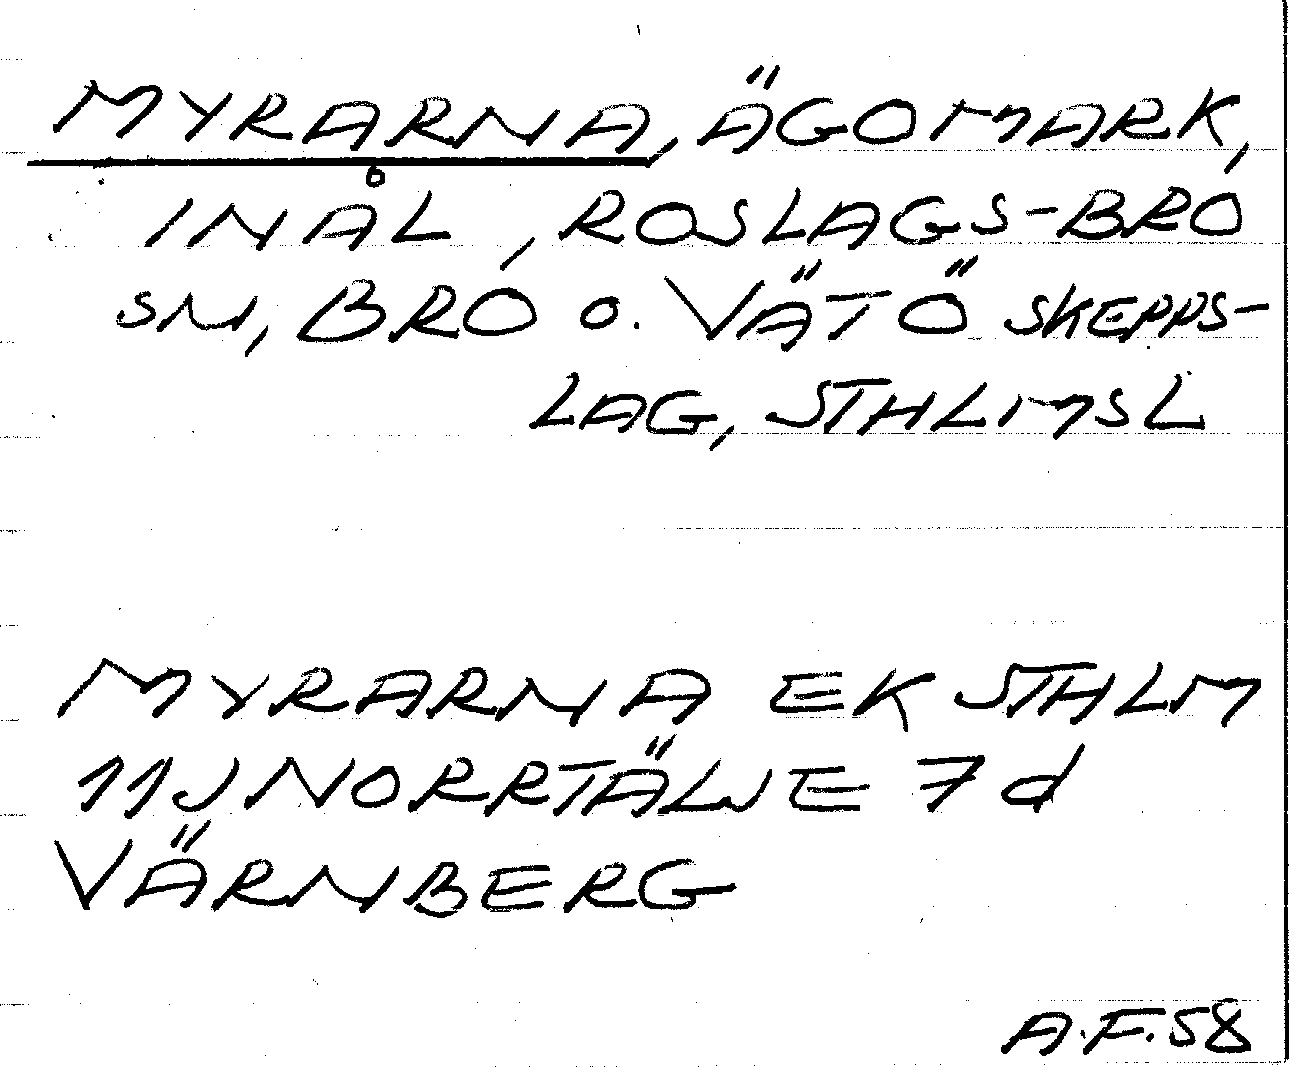 MYRARNA, ÄGOMARK,
INÅL, ROSLAGS-BRO
SN, BRO o. VÄTÖ SKEPPS-
LAG, STHLMSL
MYRARNA EK STHLM
11J NORRTÄLJE 7d
VÄRNBERG
A.F. 58